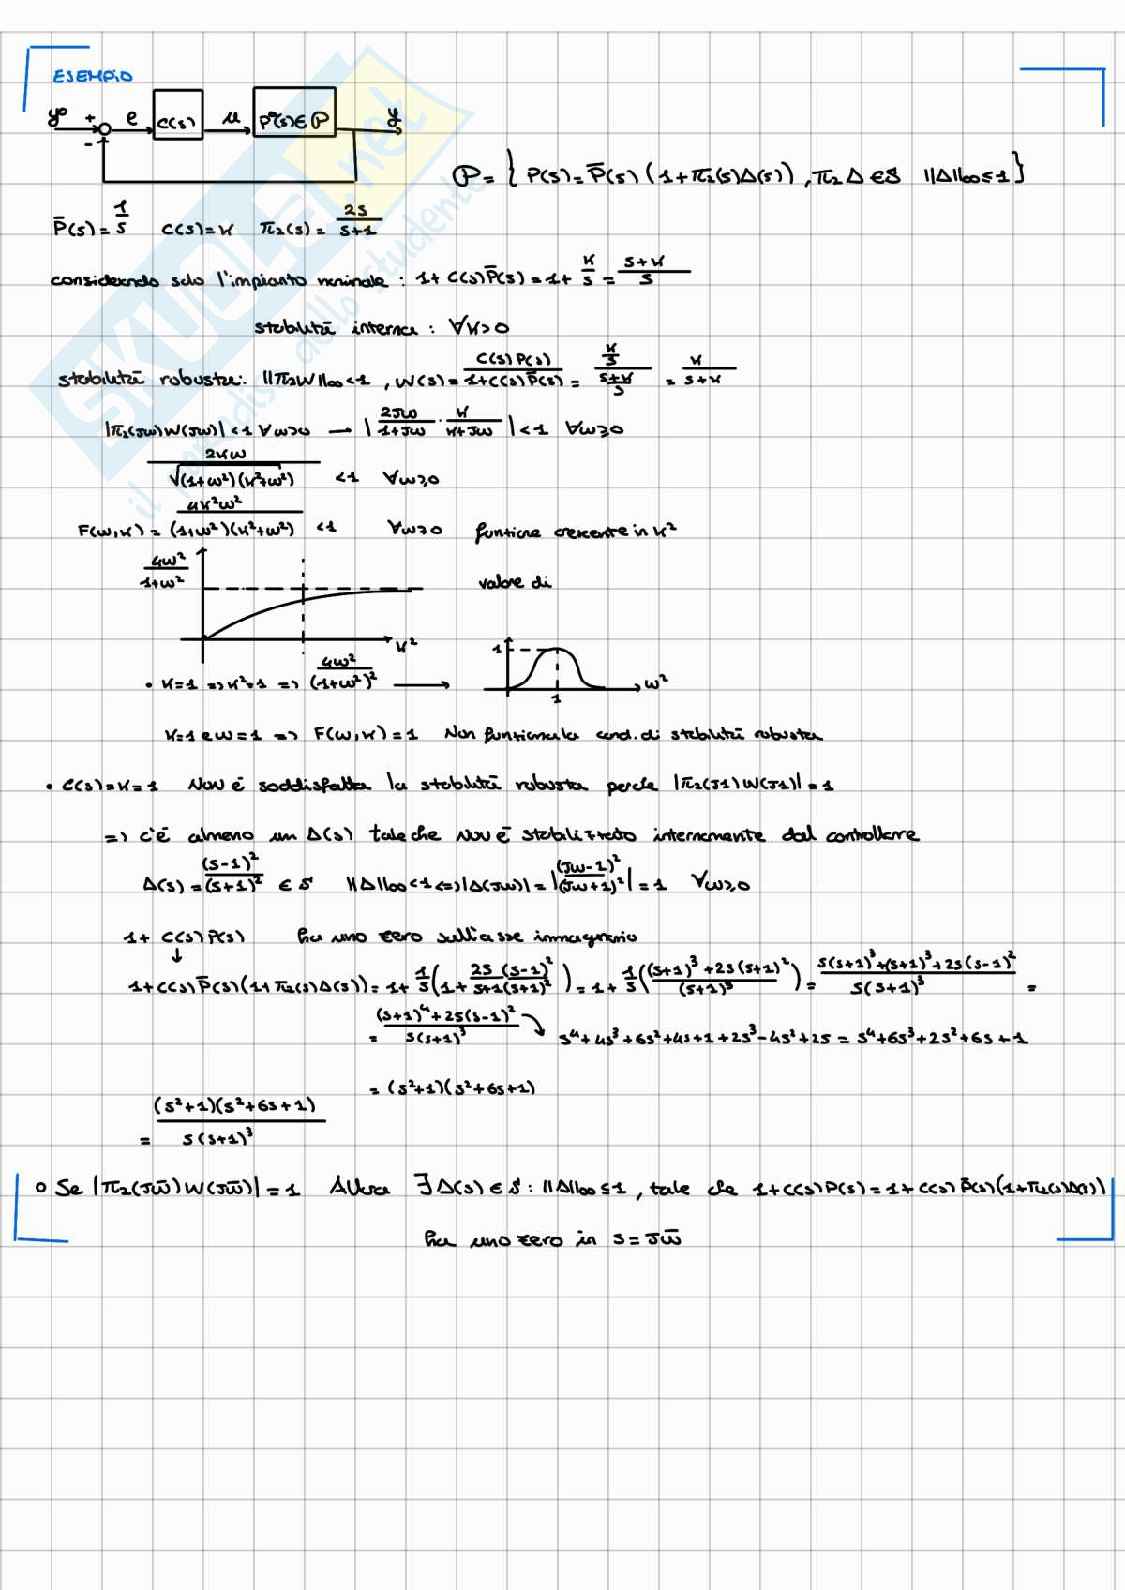 ESEMPIO
y° + e C(s) u P(s)∈𝒫 y
-
𝒫 = { P(s) = P̄(s) (1+π₂(s)Δ(s)) , π₂Δ ∈ S ||Δ||∞≤1 }
P̄(s) = 1/s C(s) = K π₂(s) = 2s/(s+1)
considerando solo l'impianto nominale : 1 + C(s)P̄(s) = 1 + K/s = (s+K)/s
stabilità interna : ∀K>0
stabilità robusta: ||π₂W||∞<1 , W(s) = C(s)P(s)/(1+C(s)P̄(s)) = (K/s)/((s+K)/s) = K/(s+K)
|π₂(jω)W(jω)|<1 ∀ω≥0 → |2jω/(1+jω) · K/(K+jω)|<1 ∀ω≥0
2Kω/√((1+ω²)(K²+ω²)) <1 ∀ω≥0
F(ω,K) = 4K²ω²/((1+ω²)(K²+ω²)) <1 ∀ω≥0 funzione crescente in K²
4ω²/(1+ω²) valore di
K²
• K=1 => K²=1 => 4ω²/(1+ω²)² → 1 1 ω²
K=1 e ω=1 => F(ω,K) = 1 Non funziona la cond. di stabilità robusta
• C(s)=K=1 NON è soddisfatta la stabilità robusta perché |π₂(j1)W(j1)| = 1
=> c'è almeno un Δ(s) tale che NON è stabilizzato internamente dal controllore
Δ(s) = (s-1)²/(s+1)² ∈ S ||Δ||∞<1 <=> |Δ(jω)| = |(jω-1)²/(jω+1)²| = 1 ∀ω≥0
1 + C(s)P(s) ha uno zero sull'asse immaginario
↓
1+C(s)P̄(s)(1+π₂(s)Δ(s)) = 1+ 1/s(1+ 2s(s-1)²/(s+1(s+1)²)) = 1+ 1/s(((s+1)³+2s(s+1)²)/(s+1)³) = (s(s+1)³+(s+1)³+2s(s-1)²)/(s(s+1)³) =
= ((s+1)⁴+2s(s-1)²)/(s(s+1)³) s⁴+4s³+6s²+4s+1+2s³-4s²+2s = s⁴+6s³+2s²+6s+1
= (s²+1)(s²+6s+1)
= (s²+1)(s²+6s+1)/(s(s+1)³)
° Se |π₂(jω̄)W(jω̄)| = 1 Allora ∃Δ(s) ∈ S : ||Δ||∞≤1 , tale che 1+C(s)P(s) = 1+C(s)P̄(s)(1+π₂(s)Δ(s))
ha uno zero in s = jω̄
SKUOLA.net
il paradiso dello studente